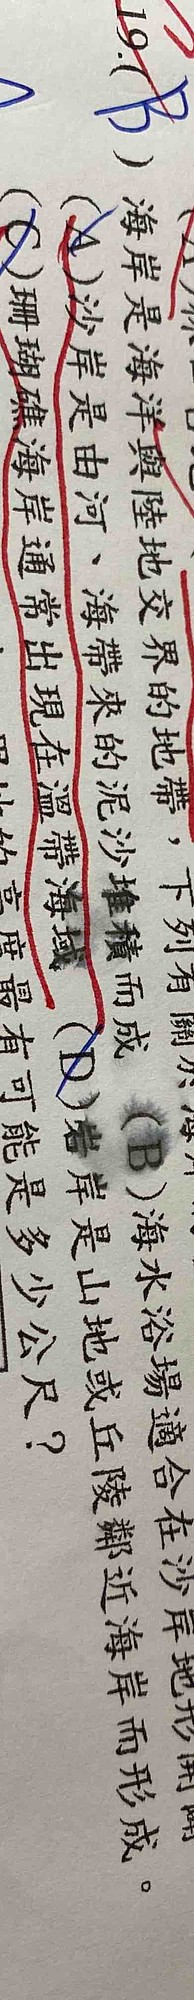 19.( B ) 海岸是海洋與陸地交界的地帶，下列有關
(A)沙岸是由河、海帶來的泥沙堆積而成 (B)海水浴場適合在沙岸地形開闢
(C)珊瑚礁海岸通常出現在溫帶海域 (D)岩岸是山地或丘陵鄰近海岸而形成。
高度最有可能是多少公尺？